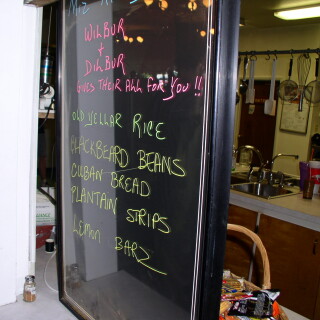 WILBUR
+
DILBUR
GIVES THEIR ALL FOR YOU!!
OLD YELLAR RICE
BLACKBEARD BEANS
CUUBAN BREAD
PLANTAIN STRIPS
LEMON BARZ